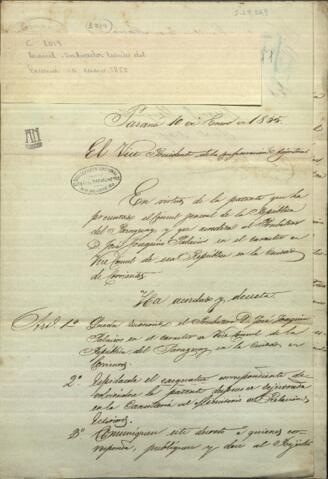 C 2019
Paraná 10 de Enero de 1855.
El Vice Presidente de la Confederacion Argentina
En virtud de la patente que ha
presentado el Consul general de la Republica
del Paraguay y que acredita al Ciudadano
D. José Joaquin Palacios en el caracter de
Vice Consul de esa Republica en la Ciudad
de Corrientes
Ha acordado y decreta.
Art. 1º Queda reconocido el Ciudadano D. José Joaquin
Palacios en el caracter de Vice Consul de la
Republica del Paraguay en la Ciudad de
Corrientes
2º Espidase el exequatur correspondiente
la patente despues de
en la Cancilleria del Ministerio de Relaciones
Esteriores
3º Comuniquese este decreto a quienes co-
rresponda, publiquese y dese al Registro